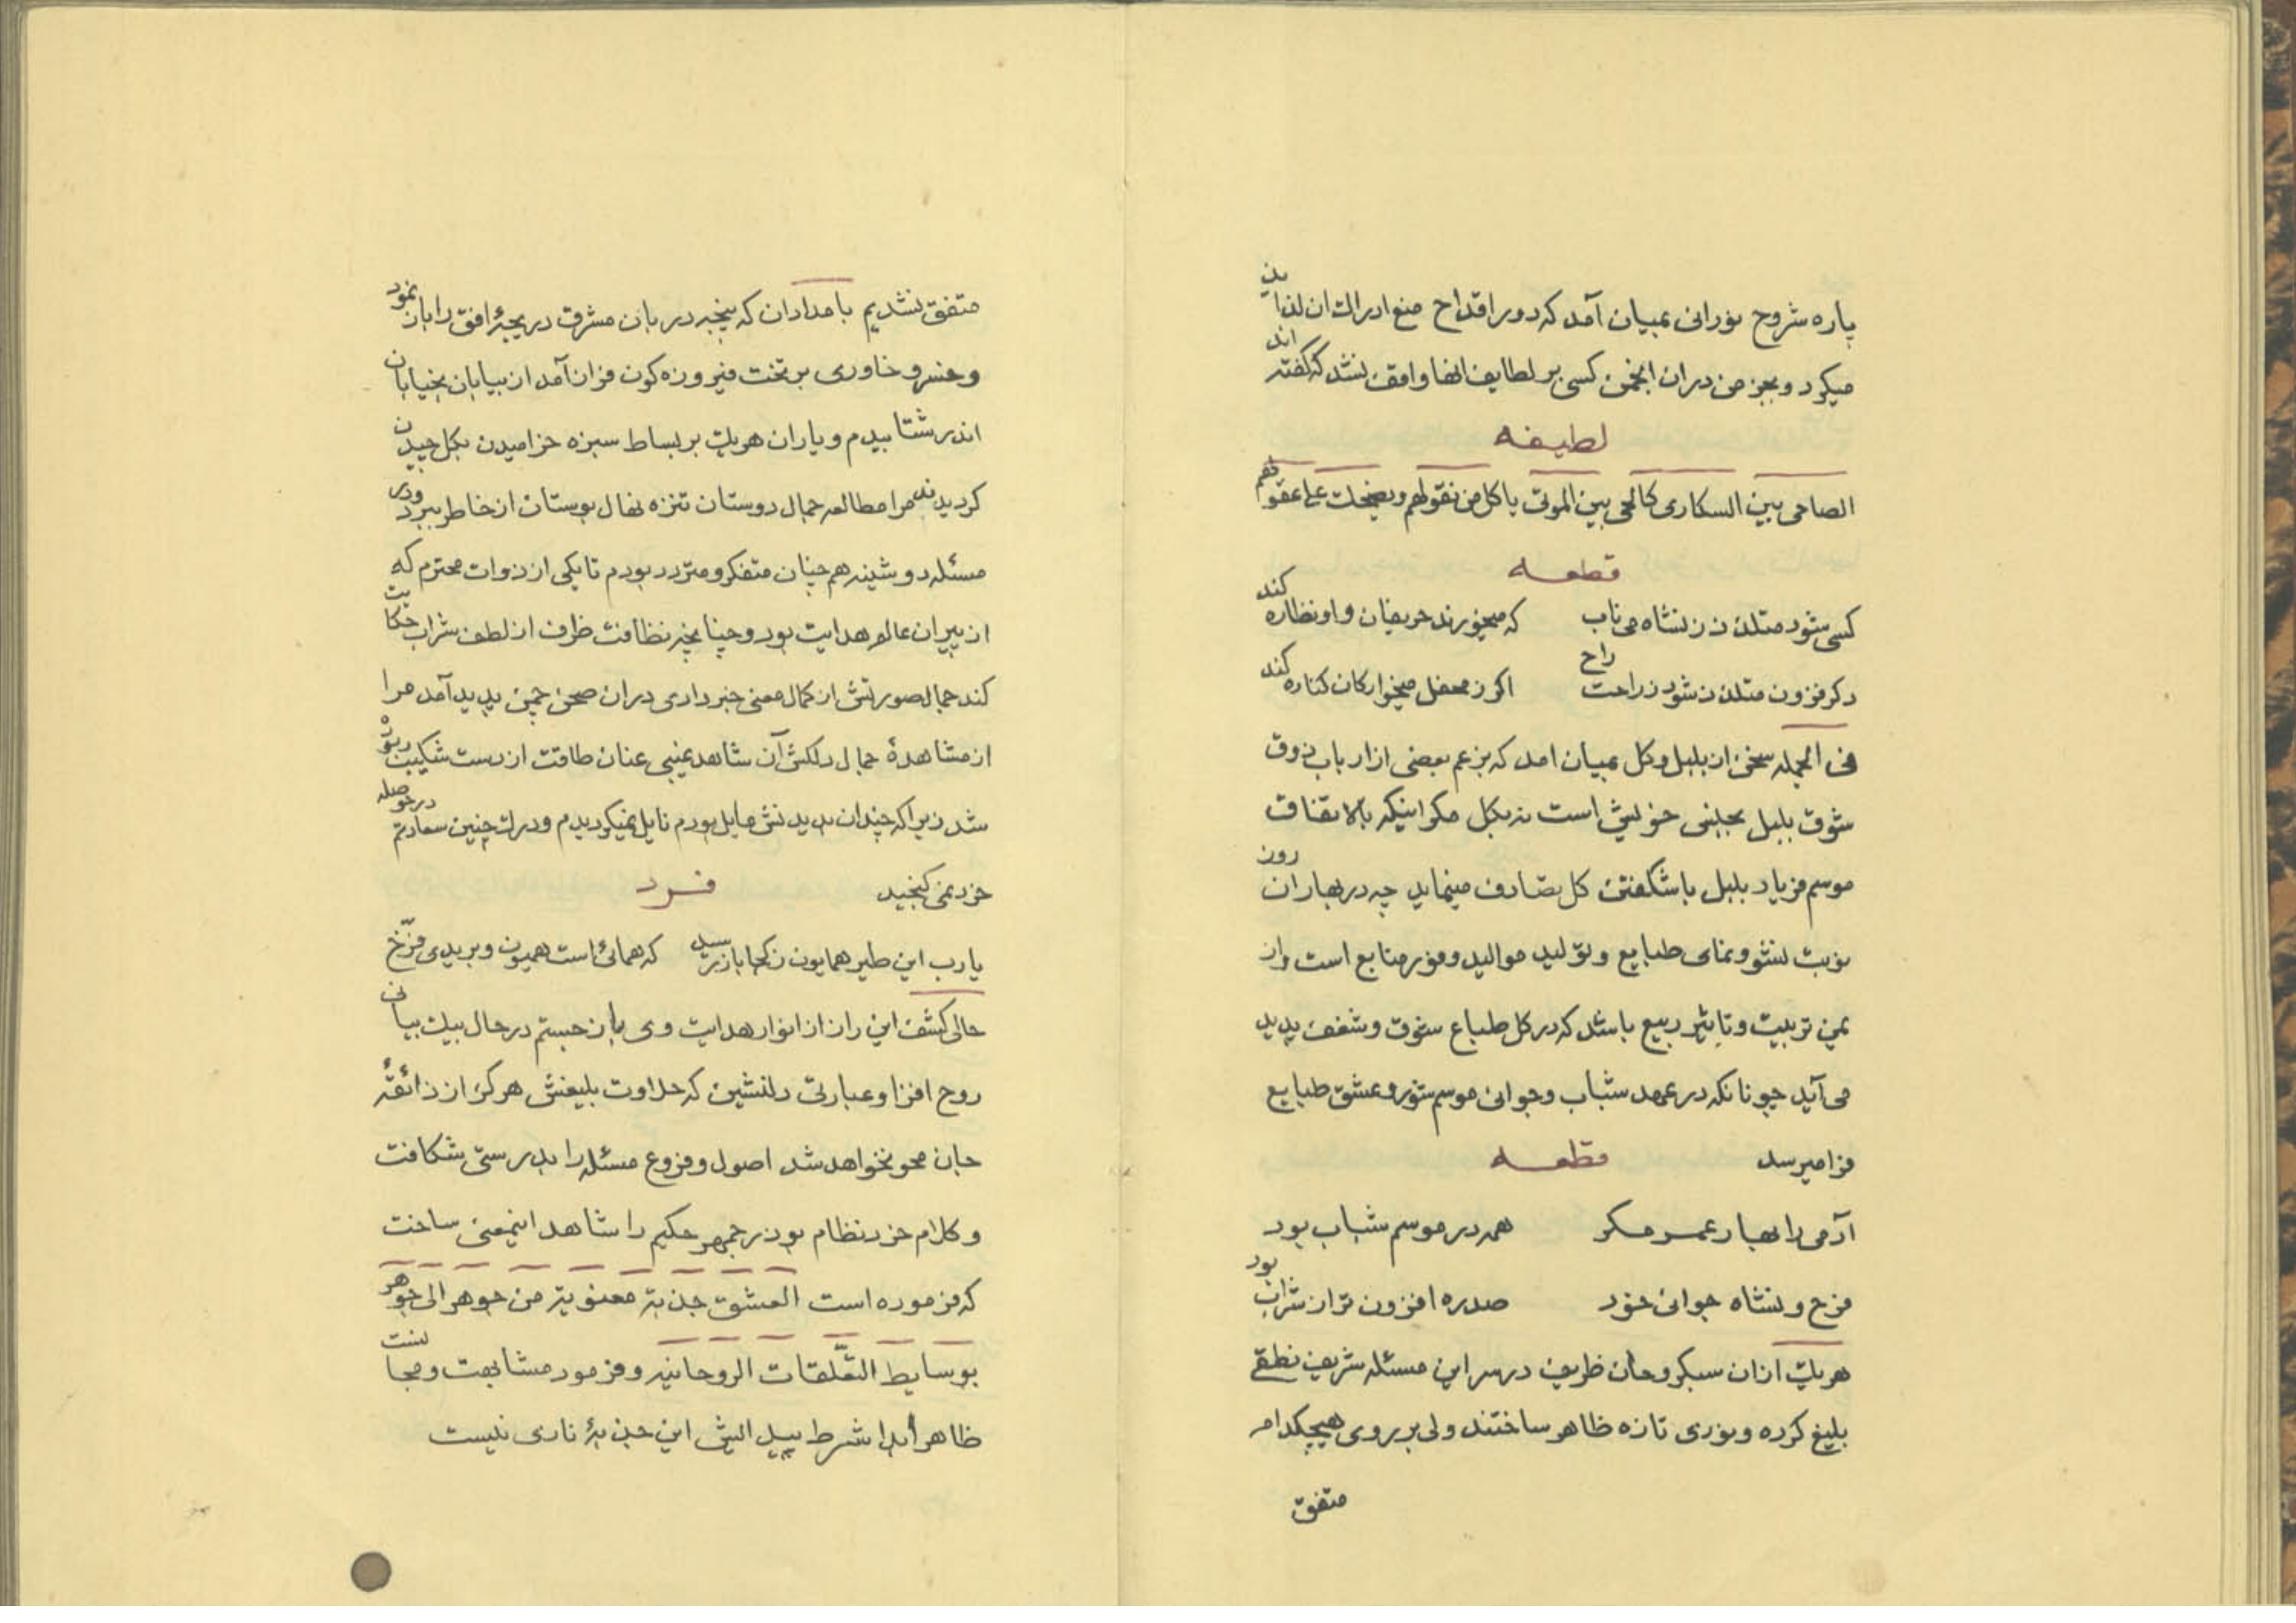 پاره شروح نورانی بمیان آمد که دور اقداح منع ادراک ان لذاین
میکرد و بجز من دران انجمن کسی بر لطایف انها واقف نشد که گفته اند
لطیفه
الصاحی بین السکاری کالحی بین الموتی یاکل من نقولهم ویضحک علی عقولهم
قطعه
کسی شود متلذذ ز نشاه می ناب که میخورند حریفان و او نظاره کند
دکر فزون متلذذ شود ز راحت راح اکر ز محفل میخوارکان کناره کند
فی الجمله سخن از بلبل و کل بمیان امد که بزعم بعضی از ارباب ذوق
شوق بلبل بجلبنی خویش است نه بکل مکر اینکه بالاتفاق
موسم فریاد بلبل با شکفتن کل تصادف مینماید چه در بهاران روز
نوبت نشو و نمای طبایع و تولید موالید و موفر منابع است و از
یمن تربیت و تاثیر ربیع باشد که در کل طباع شوق و شغف پدید
می آید چونانکه در عهد شباب و جوانی موسم شور و عشق طبایع
فرا میرسد قطعه
آدمی را بهار عمر مکر همه در موسم شباب بود
فرح و نشاه جوانی خود صد ره افزون تر از شراب بود
هریک ازان سبکروحان ظریف در سر این مسئله شریف نطقی
بلیغ کرده و نوری تازه ظاهر ساختند ولی بر روی هیچکدام
متفق
متفق نشدیم بامدادان که پنجه دربان مشرق دریچهٔ افق را باز نمود
و خسرو خاوری بر تخت فیروزه کون فراز آمد از بیابان بخیابان
اندر شتابیدم و یاران هریک بر بساط سبزه خرامیدن بکل چیدن
کردیدند مرا مطالعه جمال دوستان تنزه نهال بوستان از خاطر ببرد و در
مسئله دوشینه هم چنان متفکر و متردد بودم تا یکی از ذوات محترم که
از پیران عالم هدایت بود و چنانچه نظافت ظرف از لطف شراب حکایت
کند جمال صورتش از کمال معنی خبر دادی دران صحن چمن پدید آمد مرا
از مشاهدهٔ جمال دلکش آن شاهد غیبی عنان طاقت از دست شکیب ربوده
شد زیرا که چندان بدیدنش مایل بودم نایل نمیکردیدم و درک چنین سعادتم در حوصله
خرد نمی کنجید فرد
یارب این طیر همایون ز کجا باز رسید که همائی است همیون و بریدی فرّخ
حالی کشف این راز از انوار هدایت وی باز جستم در حال بیک بیانی
روح افزا و عبارتی دلنشین که حلاوت بلیغش هرکز از ذائقهٔ
جان محو نخواهد شد اصول و فروع مسئله را بدرستی شکافت
و کلام خرد نظام بوذرجمهر حکیم را شاهد اینمعنی ساخت
که فرموده است العشق جذبة معنویة من جوهر الی جوهر
بوسایط التعّلقات الروحانیه و فرمود مشابهت و مجانست
ظاهر ابدا شرط پیدایش این جذبهٔ ناری نیست